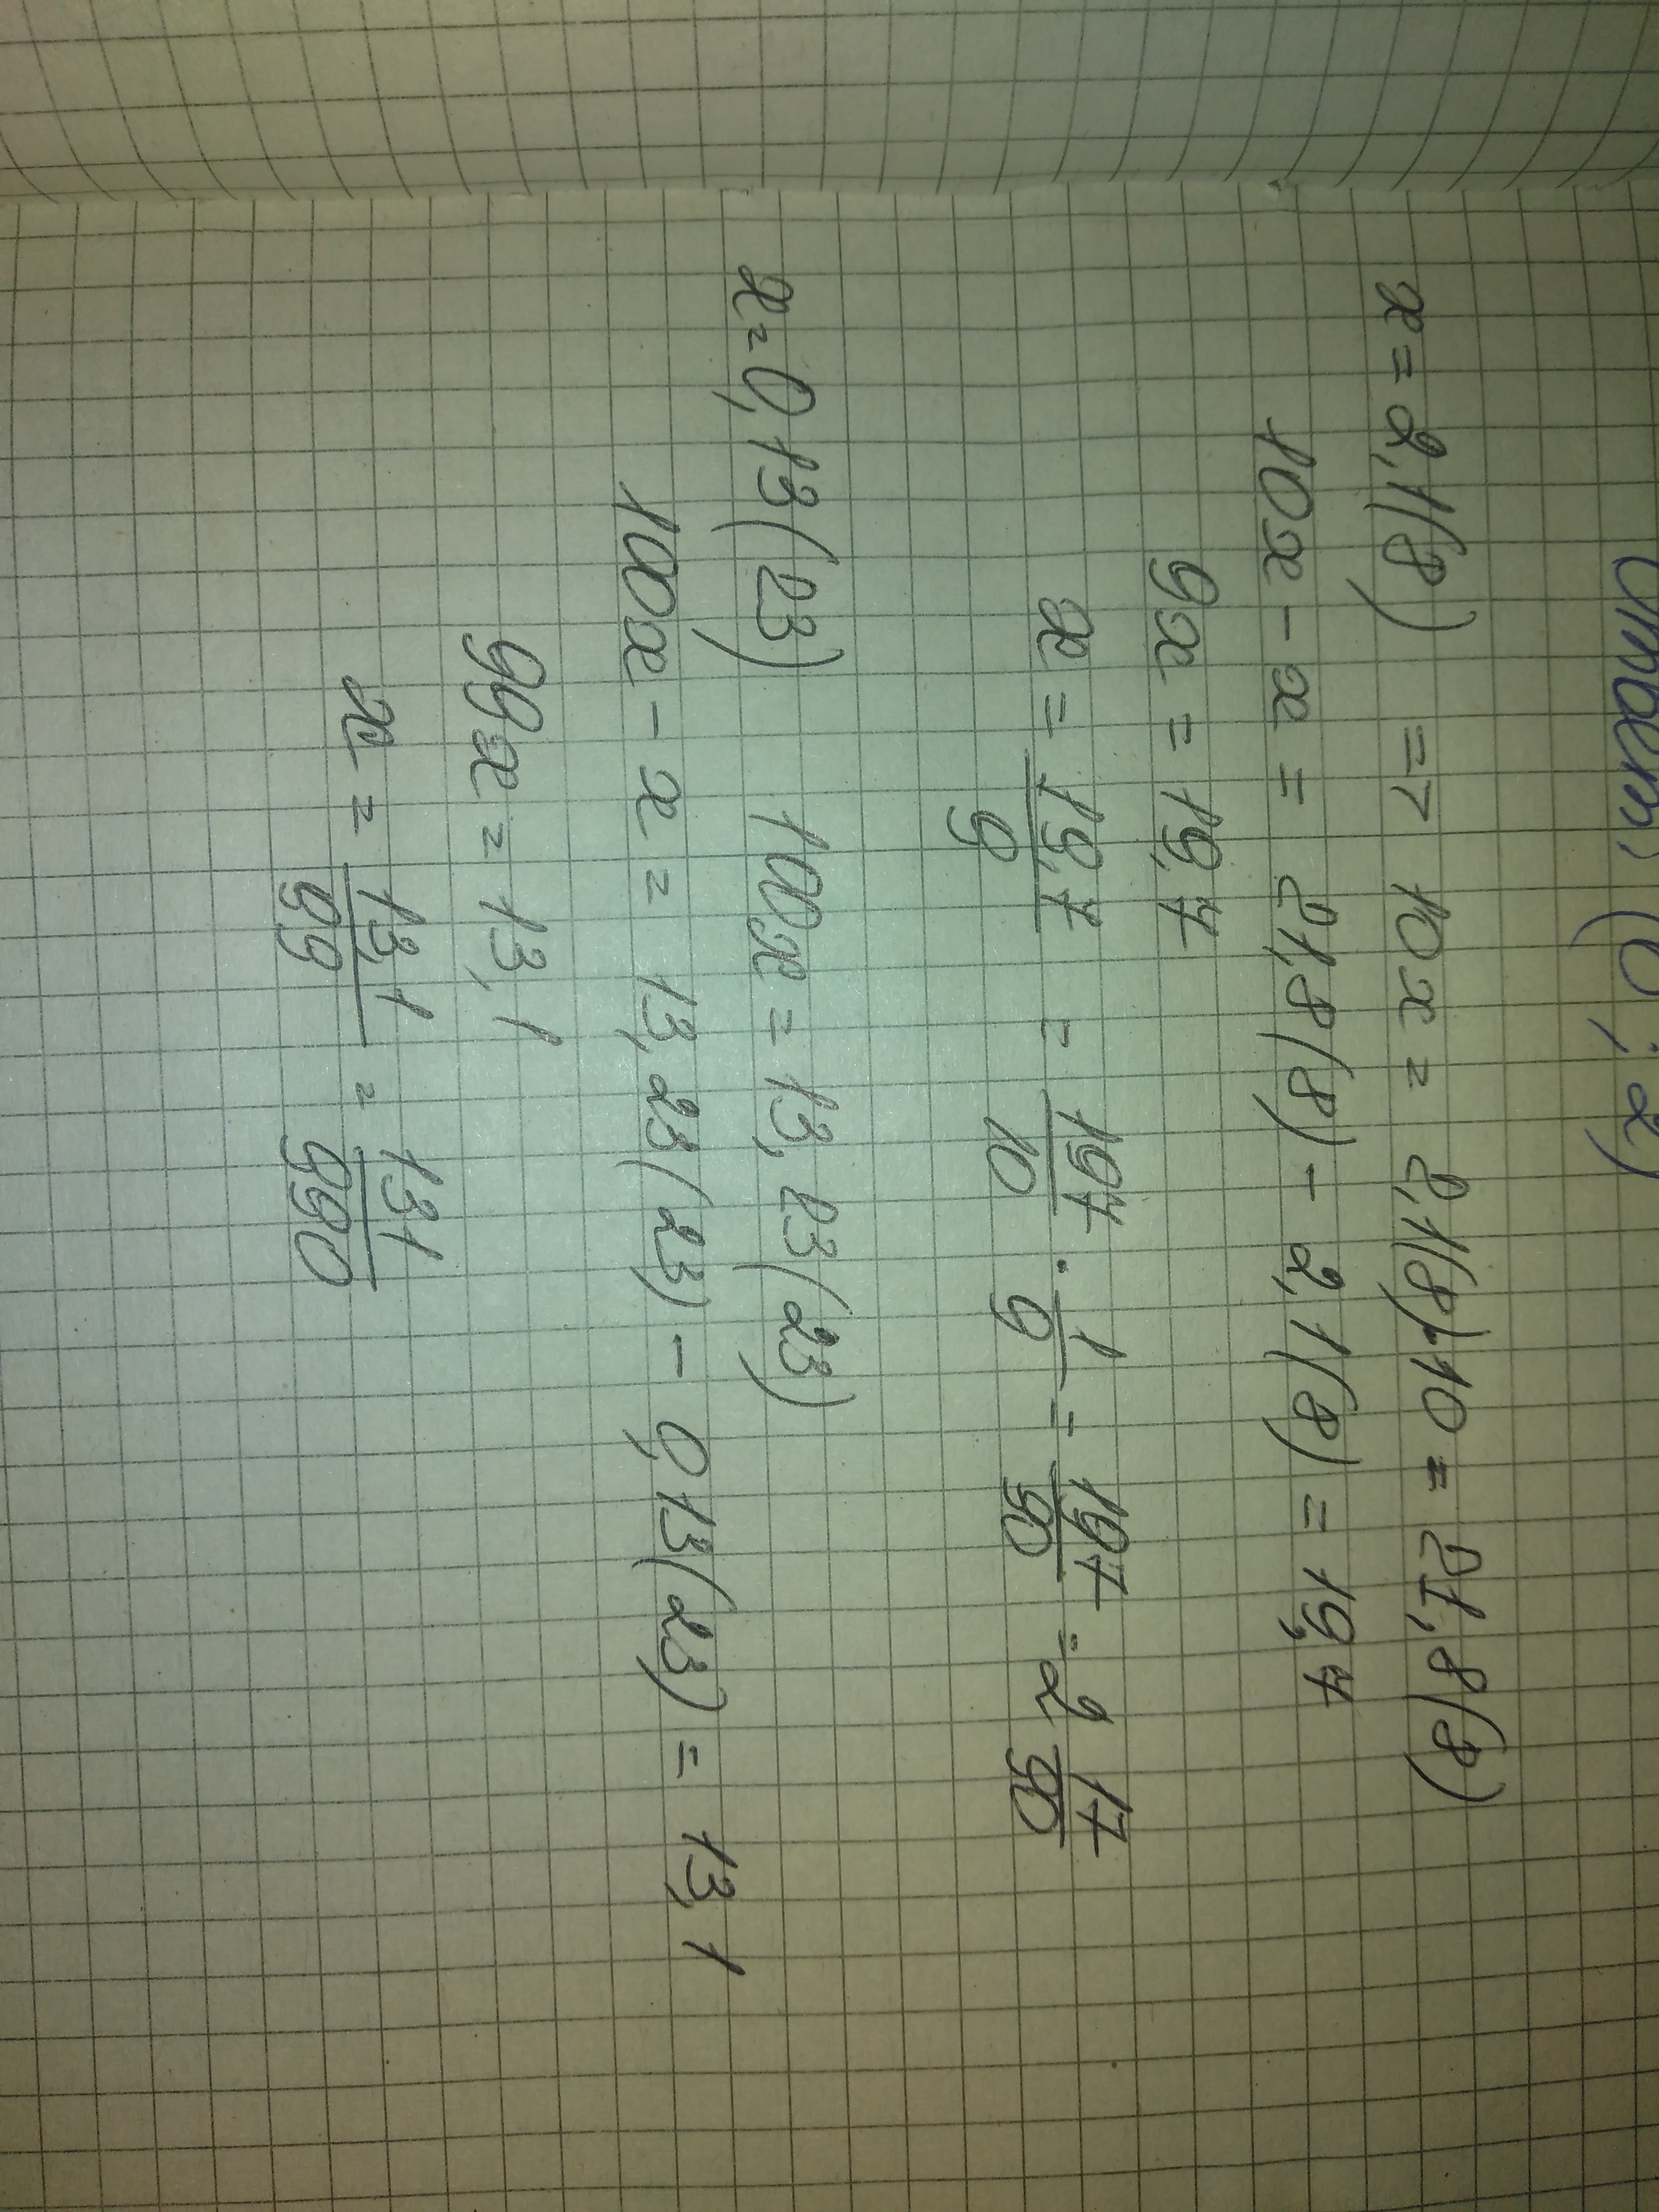 Ответ: (0; 2)
x = 2,1(8) => 10x = 2,1(8)·10 = 21,8(8)
10x - x = 21,8(8) - 2,1(8) = 19,7
9x = 19,7
x = 19,7/9 = 197/10 · 1/9 = 197/90 = 2 17/90
x = 0,13(23) 100x = 13,23(23)
100x - x = 13,23(23) - 0,13(23) = 13,1
99x = 13,1
x = 13,1/99 = 131/990